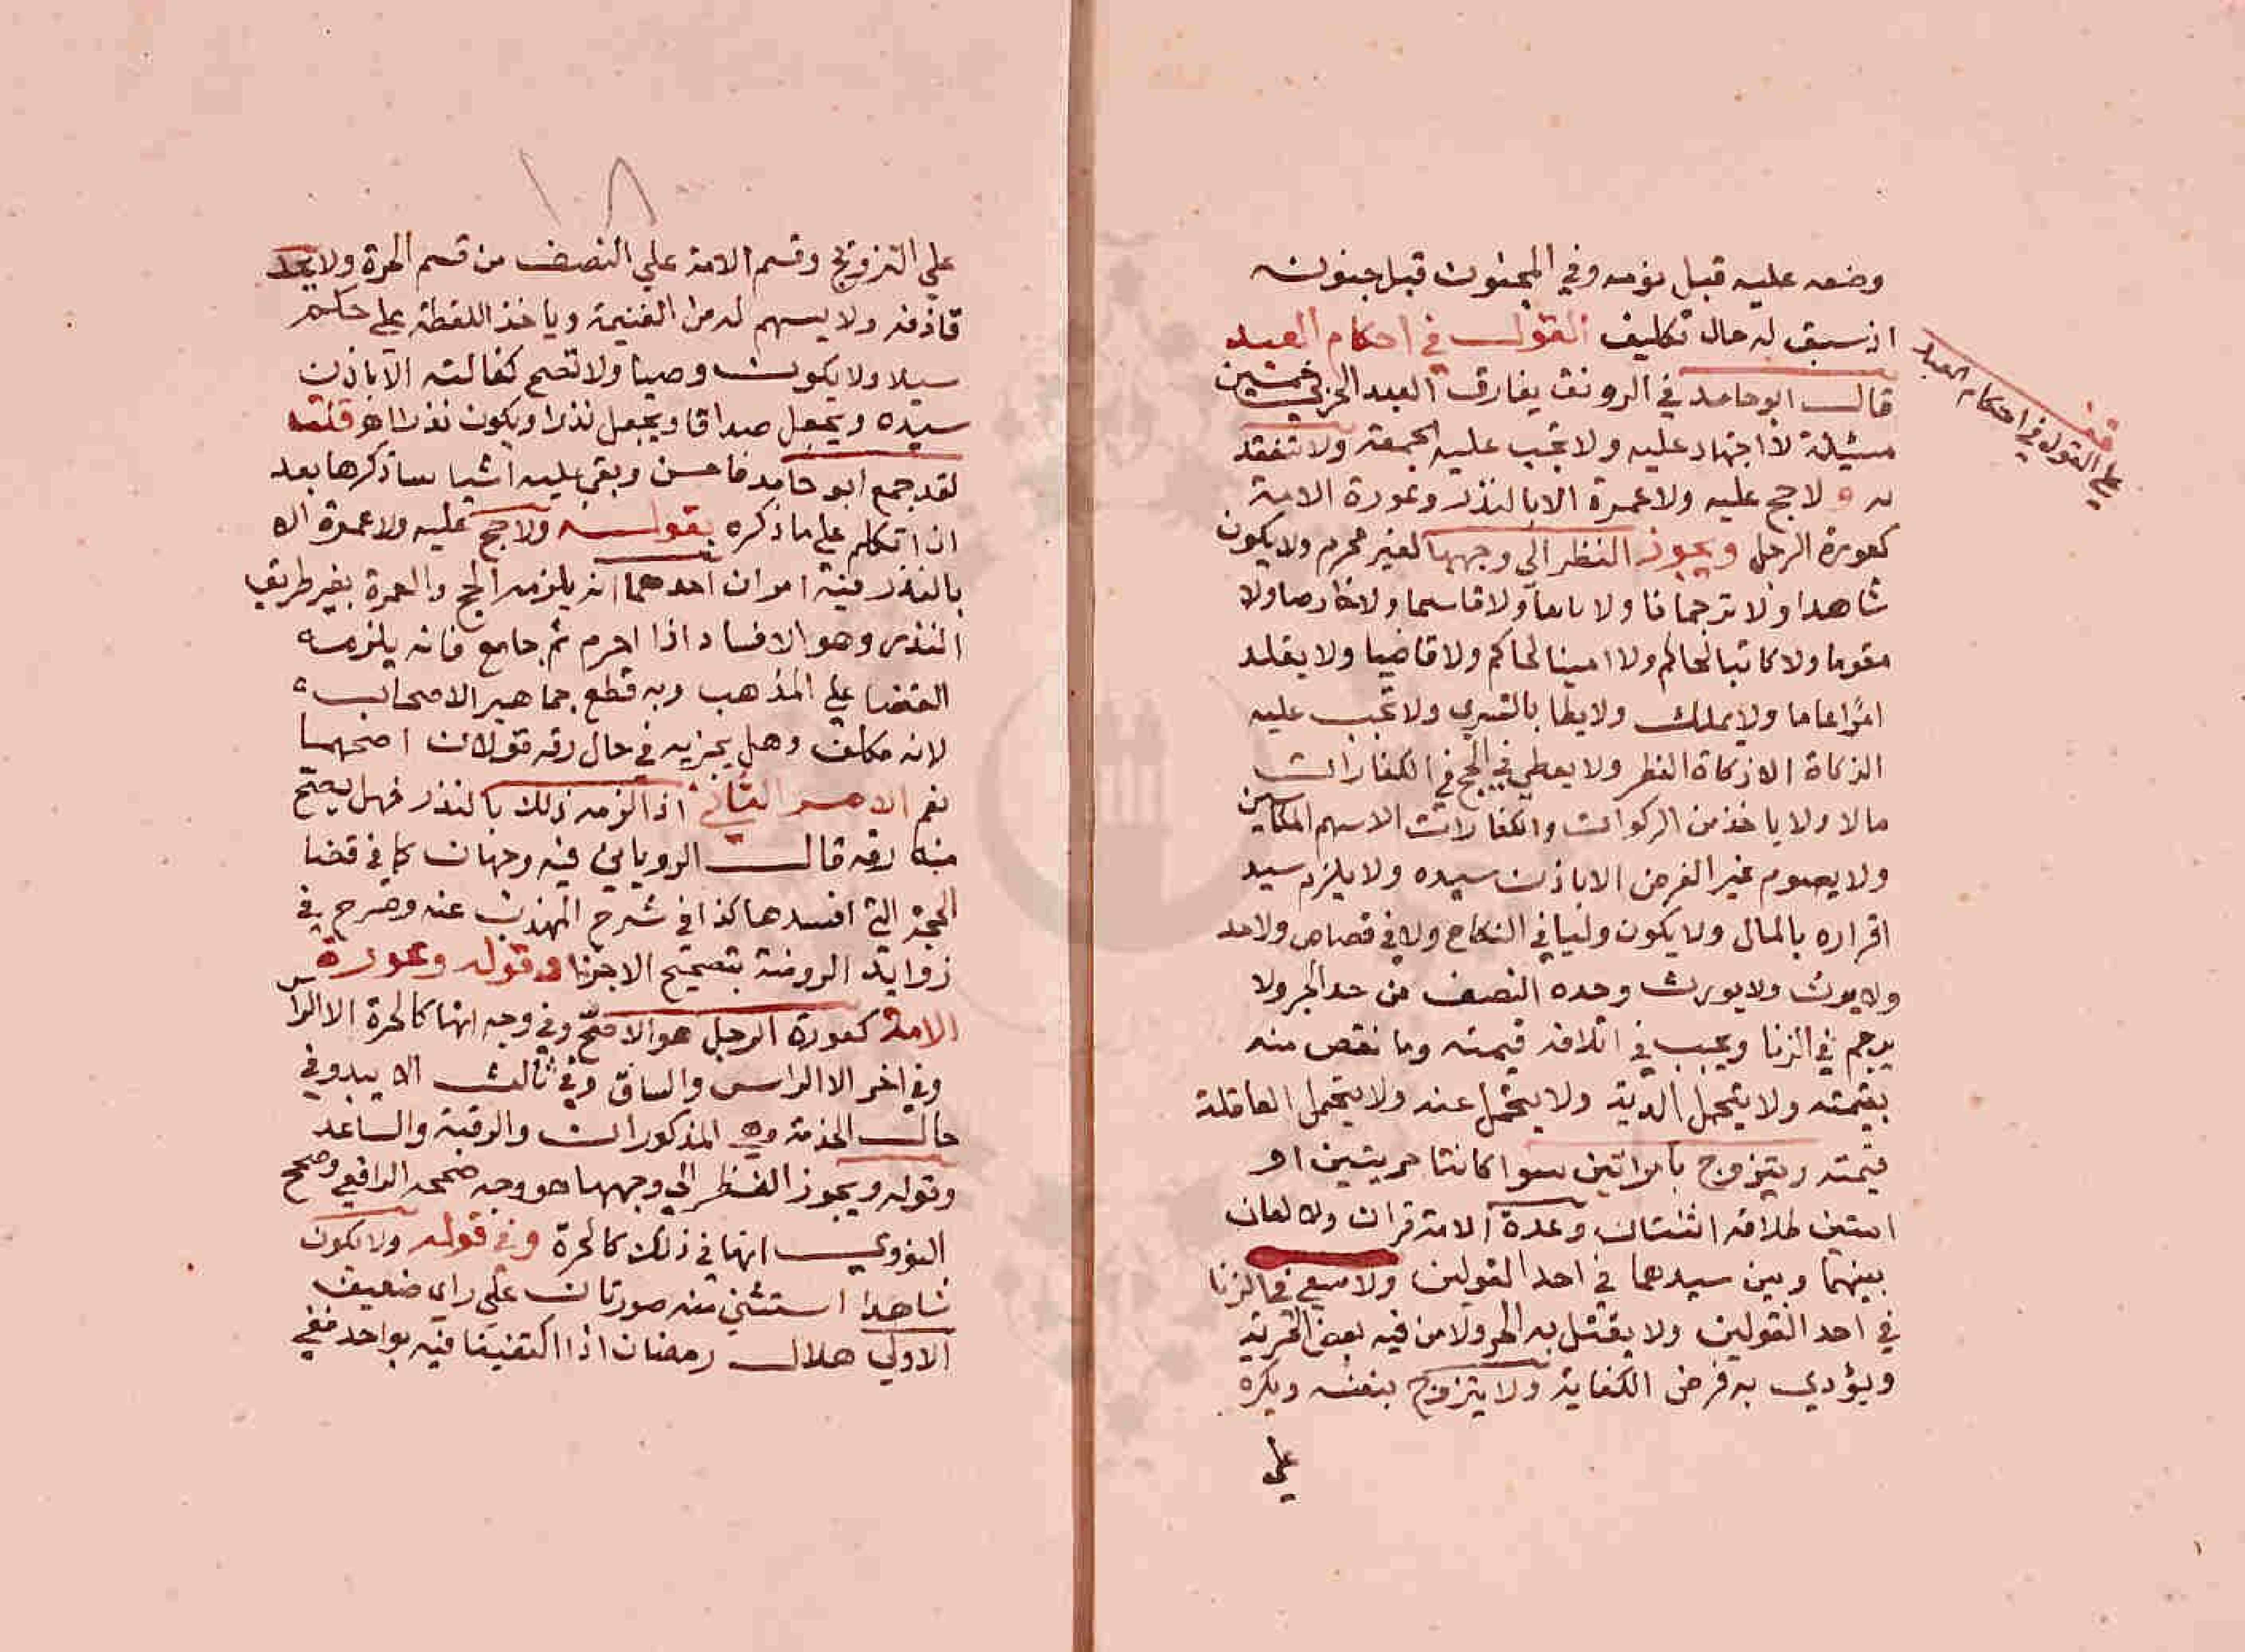 وضعه عليه قبل نومه وفي المجنون قبل جنونه
ان سبق له حال تكليف القول في احكام العبد
قال ابو حامد في الرونق يفارق العبد الحر في خمسين
مسئلة لا اجتهاد عليه ولا تجب عليه الجمعة ولا تنعقد
به ولا حج عليه ولا عمرة الا بالنذر وعورة الامة
كعورة الرجل ويجوز النظر الي وجهها لغير محرم ولا يكون
شاهدا ولا ترجمانا ولا ولا قاسما ولا خارصا ولا
مقوما ولا كاتبا لحاكم ولا امينا لحاكم ولا قاضيا ولا يقلد
امرا عاما ولا يملك ولا يطا بالتسري ولا تجب عليه
الزكاة الا زكاة الفطر ولا يعطي في الحج في الكفارات
مالا ولا ياخذ من الزكوات والكفارات الا سهم المكاتبين
ولا يصوم غير الفرض الا باذن سيده ولا يلزم سيد
اقراره بالمال ولا يكون وليا في النكاح ولا في قصاص ولا حد
ولا يرث ولا يورث وحده النصف من حد الحر ولا
يرجم في الزنا ويجب في اتلافه قيمته وما نقص منه
بقيمته ولا يتحمل الدية ولا يتحمل عنه ولا يتحمل العاقلة
قيمته ويتزوج بامراتين سوا كانتا حريتين او
امتين طلاقه اثنتان وعدة الامة قران ولا لعان
بينهما وبين سيدهما في احد القولين ولا في الزنا
في احد القولين ولا يقتل به الحر ولا من فيه بعض الحرية
ويؤدي به فرض الكفاية ولا يتزوج بنفسه ويكره
علي
قف
علي القول في احكام العبد
١٨
علي التزويج وقسم الامة علي النصف من قسم الحرة ولا يحد
قاذفه ولا يسهم له من الغنيمة وياخذ اللقطة علي حكم
سيلا ولا يكون وصيا ولا تصح كفالته الا باذن
سيده ويجعل صداقا ويجعل نذرا ويكون نذرا هو قلت
لقد جمع ابو حامد فاحسن وبقي عليه اشيا ساذكرها بعد
ان اتكلم علي ما ذكره بقوله ولا حج عليه ولا عمرة الا
بالنذر فيه امران احدهما انه يلزمه الحج والعمرة بغير طريق
النذر وهو الافساد اذا احرم ثم جامع فانه يلزمه
القضا علي المذهب وبه قطع جماهير الاصحاب
لانه مكلف وهل يجزيه في حال رقه قولان اصحهما
نعم الامر الثاني اذا لزمه ذلك بالنذر فهل يصح
منه رقه قال الروياني فيه وجهان كما في قضا
الحجة التي افسدها كذا في شرح المهذب عنه وصرح في
زوايد الروضة بتصحيح الاجزا وقوله وعورة
الامة كعورة الرجل هو الاصح وفي وجه انها كالحرة الا الراس
وفي اخر الا الراس والساق وفي ثالث الا يبدو في
حال الخدمة وهي المذكورات والرقبة والساعد
وقوله ويجوز النظر الي وجهها هو وجه صححه الرافعي وصحح
النووي انها في ذلك كالحرة وفي قوله ولا يكون
شاهدا استثني منه صورتان علي راي ضعيف
الاولي هلال رمضان اذا اكتفينا فيه بواحد ففي